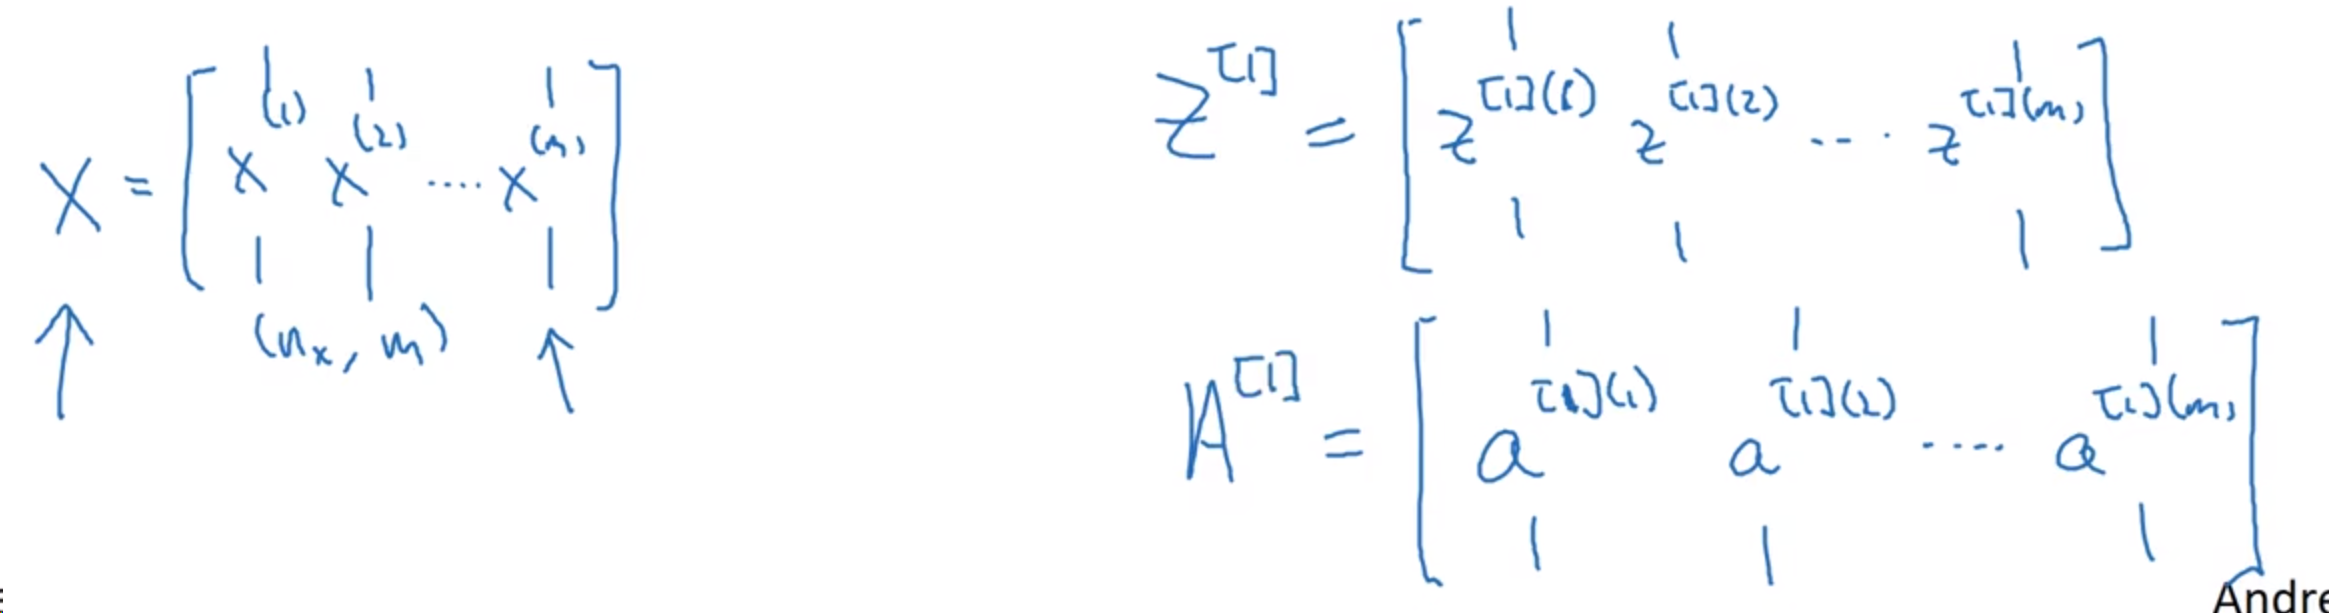 X = [ x^(1) x^(2) .... x^(m) ]
(n_x, m)
Z^[1] = [ z^[1](1) z^[1](2) .... z^[1](m) ]
A^[1] = [ a^[1](1) a^[1](2) .... a^[1](m) ]